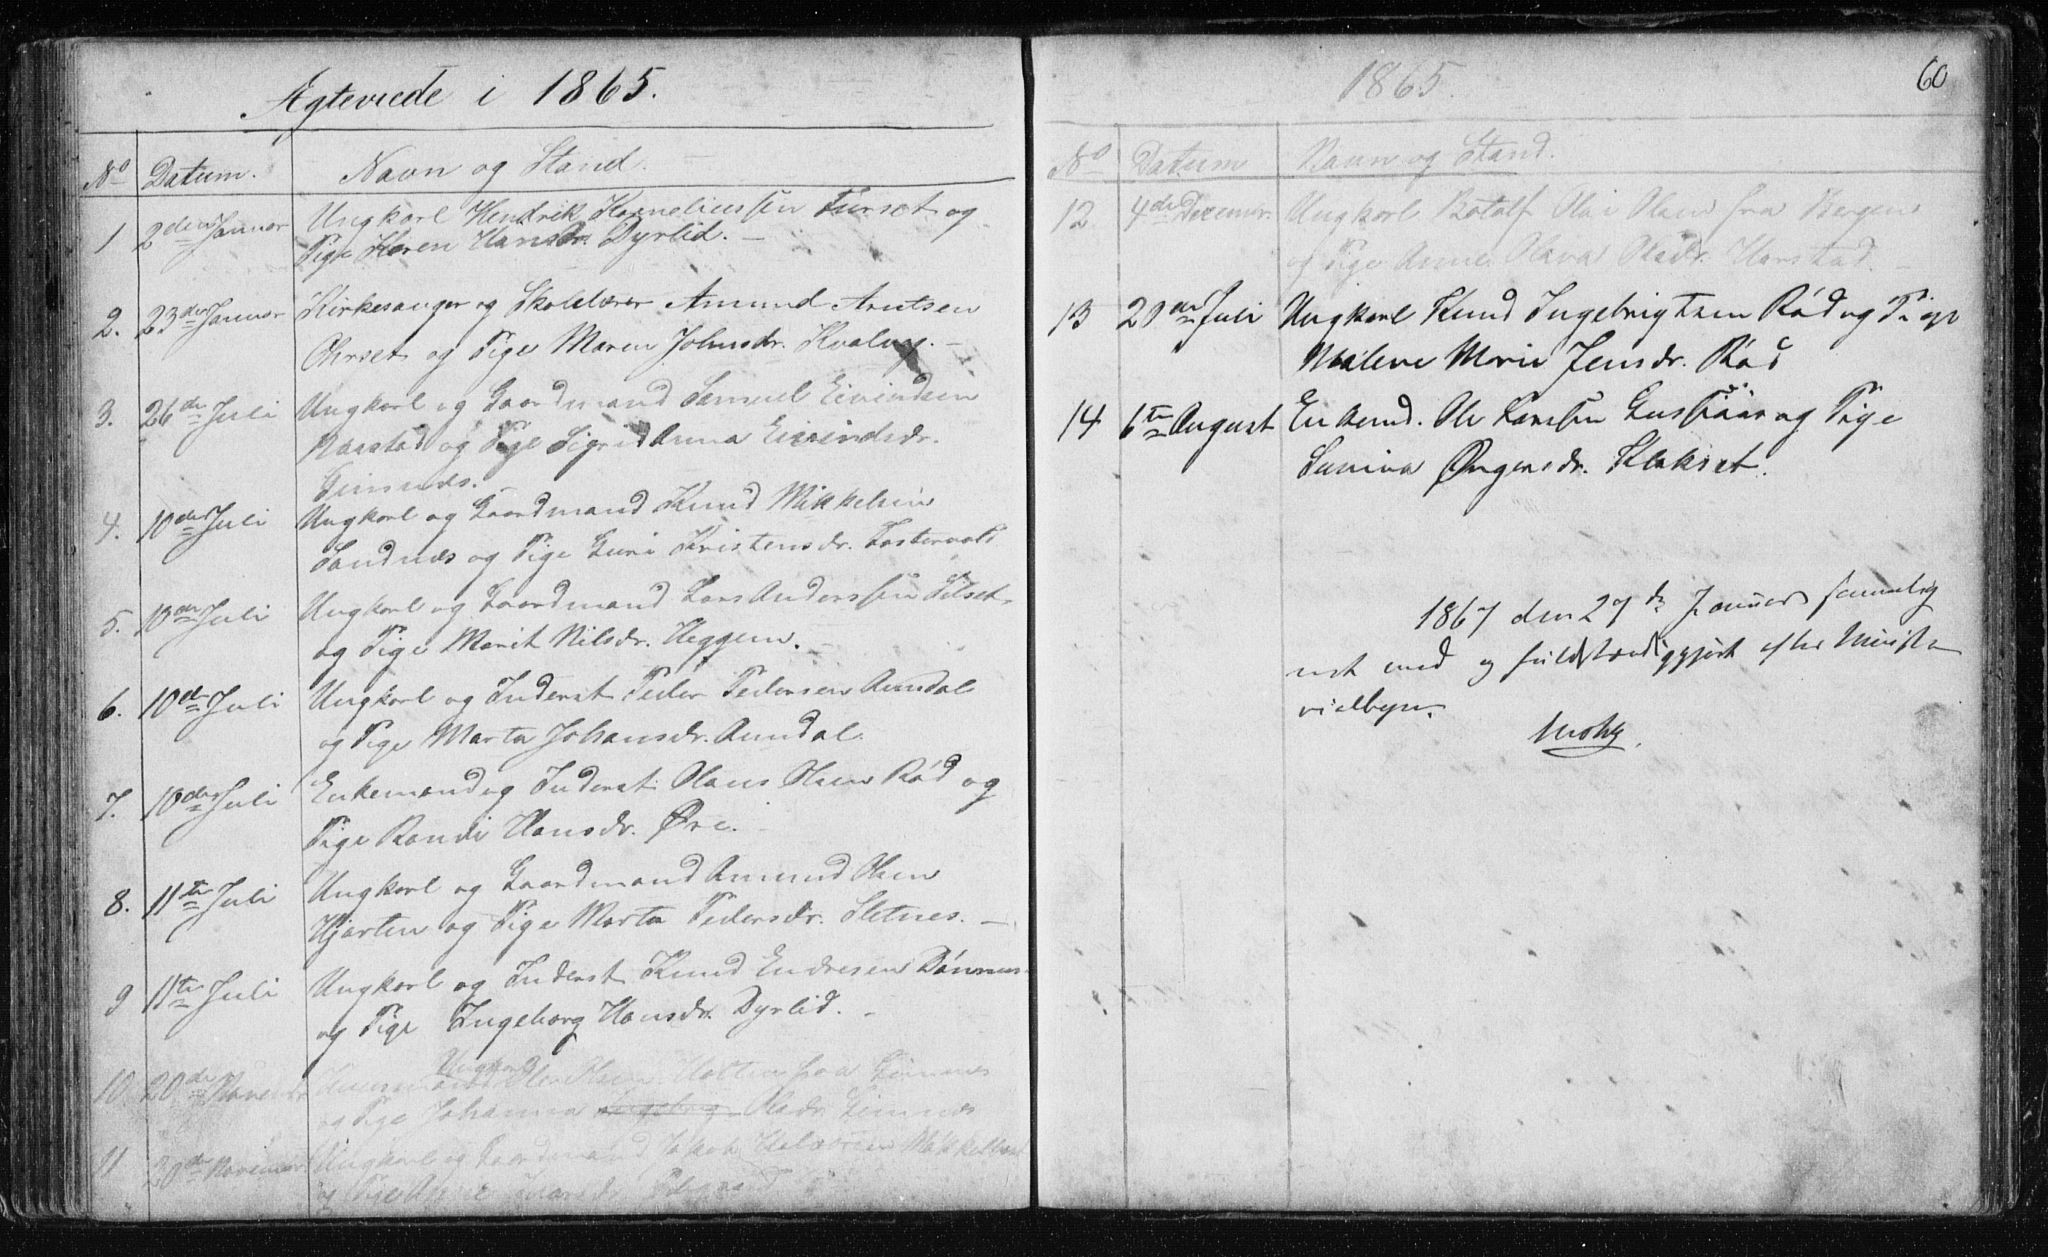 Ægteviede i 1865.
No Datum. Navn og Stand.
1 2den Januar Ungkarl Hendrik Korneliussen Furset og
Pige Karen Hansdr. Dyrlid.
2. 23de Januar Kirkesanger og Skolelærer Amund Arntsen
Ohrset og Pige Maren Johnsdr. Kvalvag.
3. 26de Juli Ungkarl og Gaardmand Samuel Eivindsen
og Pige Sigrid Anna Eivindsdr.
Gimnæs.
4. 10de Juli Ungkarl og Gaardmand Knud Mikkelsen
Sandnæs og Pige Guri Kristensdr. Fostervold
5. 10de Juli Ungkarl og Gaardmand Lars Anderssen Silset
og Pige Marit Nilsdr. Heggem.
6. 10de Juli Ungkarl og Inderst Peder Pedersen Aundal
og Pige Marta Johansdr. Aundal.
7. 10de Juli Enkemand og Inderst Olaus Olsen Rød og
Pige Randi Hansdr. Øre.
8. 11te Juli Ungkarl og Gaardmand Amund Olsen
Hjorten og Pige Marta Pedersdr. Sletnes.
9 11te Juli Ungkarl og Inderst Knud Endresen Rønnes
og Pige Ingeborg Hansdr. Dyrlid.
Ungkarl
10. 20de Novembr Ole Olsen Holten fra Gimnes
og Pige Johanna Ingebrig Olsdr. Gimnæs
11 20de Novembr. Ungkarl og Gaardmand Jakob Halvorsen
og Pige Anne
1865. 60
No Datum Navn og Stand.
12. 4de Decemer. Ungkarl Botolf Olai Olsen fra Bergen
og Pige Anne Olava Olsdr. Harstad.
13 20de Juli Ungkarl Knud Ingebrigtsen Rød og Pige
Malene Marie Jensdr. Rød
14 6te August Enkemd. Ole Larssen Gusiaas og Pige
Sanina Ørgensdr. Stokset.
1867 den 27de Januar
med og fuldstændiggjort efter Minist-
rialbogen.